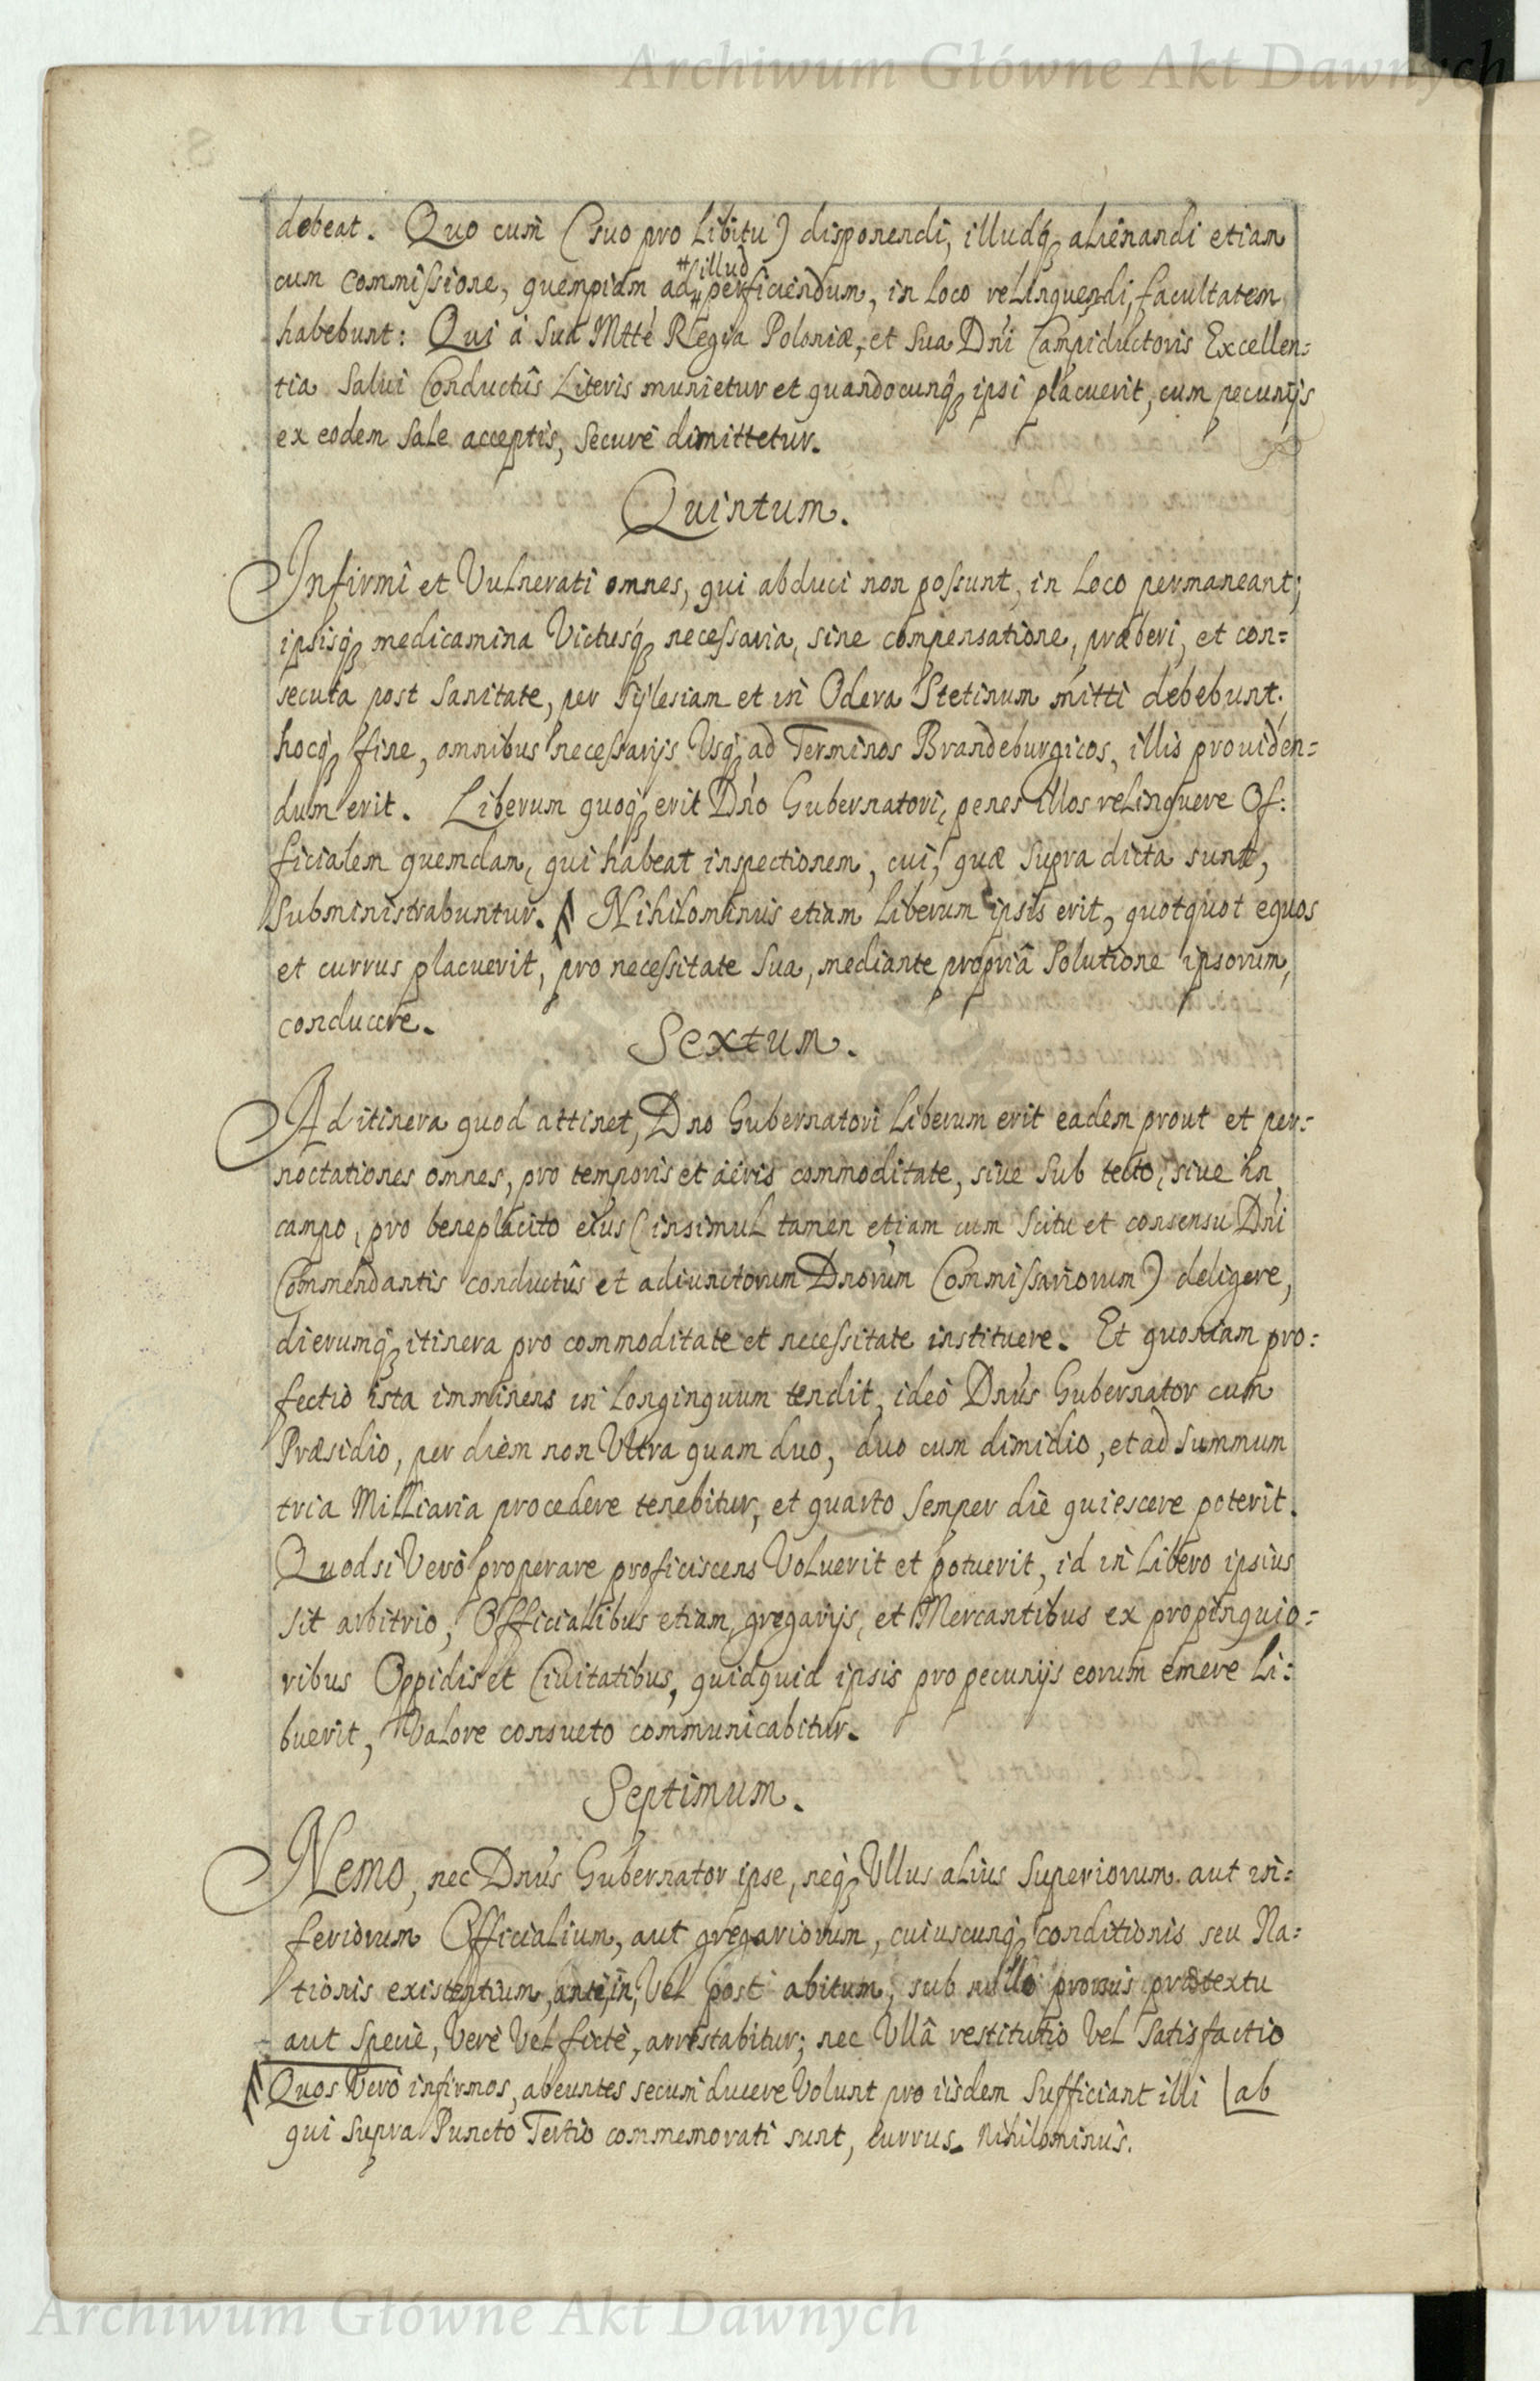 Archiwum Główne Akt Dawnych
debeat. Quo cum (suo pro libitu) disponendi, illudq₃ alienandi etiam
cum commissione, quempiam ad # illud # perficiendum, in loco relinquendi, facultatem
habebunt: Qui à Sua Mtte Regia Poloniæ, et Sua Dni Campiductoris Excellen=
tia Salui Conductûs Literis munietur et quandocunq₃ ipsi placuerit, cum pecunijs
ex eodem Sale acceptis, Securè dimittetur.
Quintum.
Infirmi et Vulnerati omnes, qui abduci non possunt, in Loco permaneant;
ipsisq₃ medicamina Victusq₃ necessaria, sine compensatione, præberi, et con=
secuta post Sanitate, per Sylesiam et in Odera Stetinum mitti debebunt.
hocq₃ fine, omnibus necessarijs Usq₃ ad Terminos Brandeburgicos, illis prouiden=
dum erit. Liberum quoq₃ erit Dno Gubernatori, penes illos relinquere Of:
ficialem quemdam, qui habeat inspectionem, cui, quæ supra dicta sunt,
Subministrabuntur. Nihilominus etiam Liberum ipsis erit, quotquot equos
et currus placuerit, pro necessitate Sua, mediante propriâ Solutione ipsorum,
conducere.
Sextum.
Ad itinera quod attinet, Dno Gubernatori Liberum erit eadem prout et per=
noctationes omnes, pro temporis et aëris commoditate, siue Sub tecto, siue in
campo, pro beneplacito eius (insimul tamen etiam cum Scitu et consensu Dni
Commendantis conductûs et adiunctorum Dnorum Commissariorum) deligere,
dierumq₃ itinera pro commoditate et necessitate instituere. Et quoniam pro:
fectio ista imminens in longinquum tendit, ideò Dnus Gubernator cum
Præsidio, per diem non Ultra quam duo, duo cum dimidio, et ad Summum
tria Milliaria procedere tenebitur, et quarto Semper die quiescere poterit.
Quodsi Verò properare proficiscens Voluerit et potuerit, id in Libero ipsius
sit arbitrio, Officialibus etiam, gregarijs, et Mercantibus ex propinquio=
ribus Oppidis et Ciuitatibus, quidquid ipsis pro pecunijs eorum emere Li:
buerit, Valore consueto communicabitur.
Septimum.
Nemo, nec Dnus Gubernator ipse, neq₃ Ullus alius Superiorum aut in:
feriorum Officialium, aut gregariorum, cuiuscunq₃ conditionis seu Na:
tionis existentium, ante, in, Vel post abitum, sub nullo prorsus prætextu
aut Specie, Verè Vel fictè, arrestabitur; nec Ullâ restitutio Vel Satisfactio
Quos Verò infirmos, abeuntes secum ducere Volunt pro iisdem Sufficiant illi | ab
qui Supra Puncto Tertio commemorati sunt, currus. Nihilominus.
Archiwum Główne Akt Dawnych